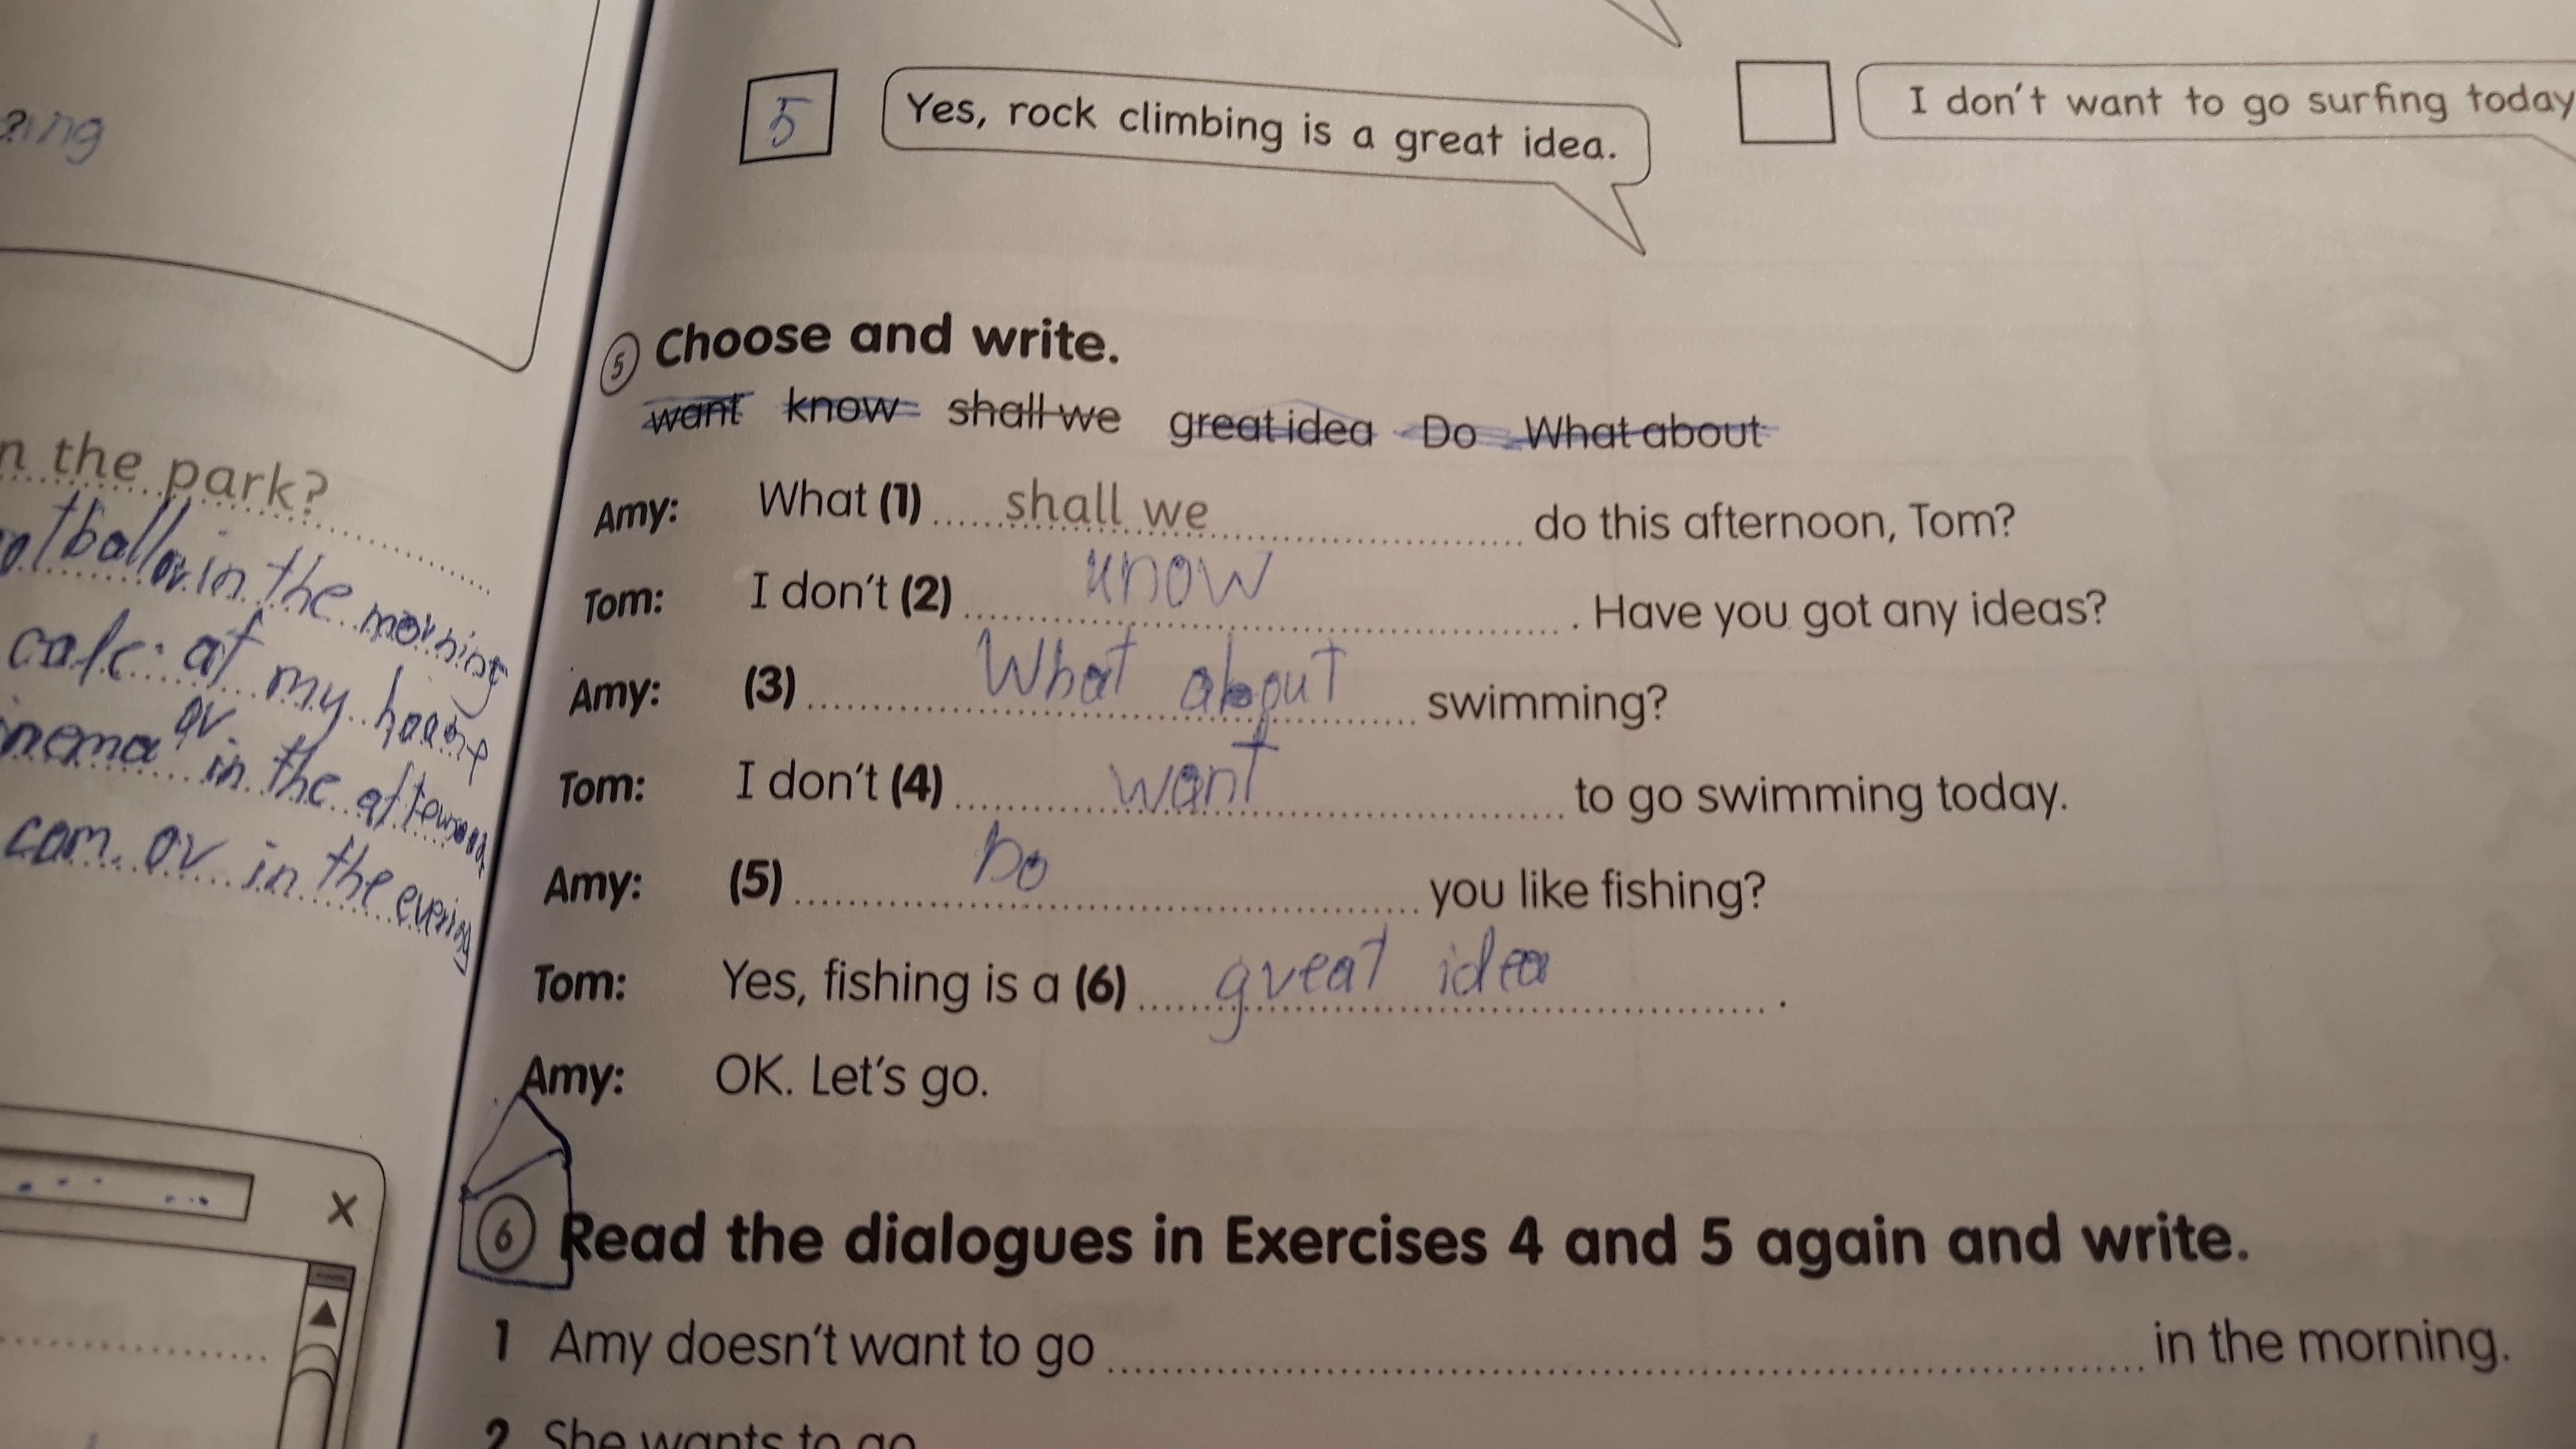 ing
n the park?
otball in the morning
cafe at my house
or
inema in the afternoon
com. or in the evening
X
5
Yes, rock climbing is a great idea.
I don't want to go surfing today
5 Choose and write.
want know shall we great idea Do What about
Amy: What (1) shall we do this afternoon, Tom?
Tom: I don't (2) know. Have you got any ideas?
Amy: (3) What about swimming?
Tom: I don't (4) want to go swimming today.
Amy: (5) Do you like fishing?
Tom: Yes, fishing is a (6) great idea.
Amy: OK. Let's go.
6 Read the dialogues in Exercises 4 and 5 again and write.
1 Amy doesn't want to go in the morning.
2 She wants to go